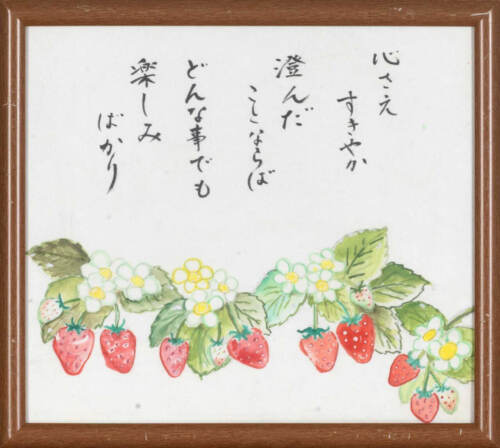 心さえ
すきやか
澄んだ
こころならば
どんな事でも
楽しみ
ばかり